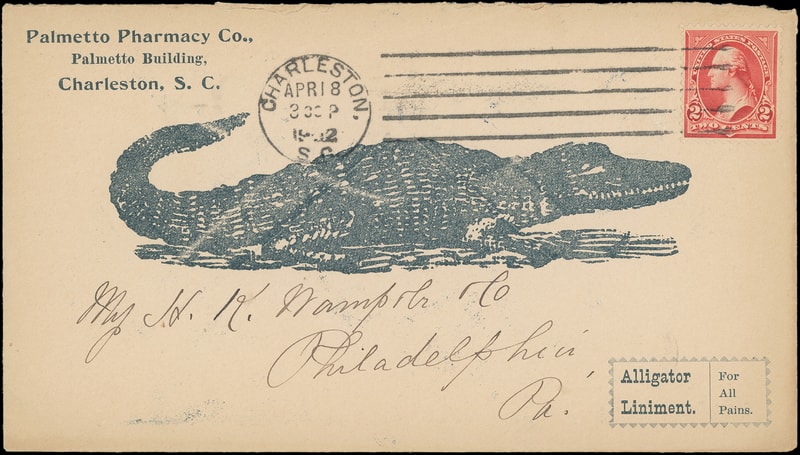 Palmetto Pharmacy Co.,
Palmetto Building,
Charleston, S. C.
CHARLESTON,
APR 18
3 30 P
1902
S.C.
UNITED STATES POSTAGE
2 2
TWO CENTS
H. K. Wampole & Co
Philadelphia,
Pa.
Alligator
Liniment.
For
All
Pains.